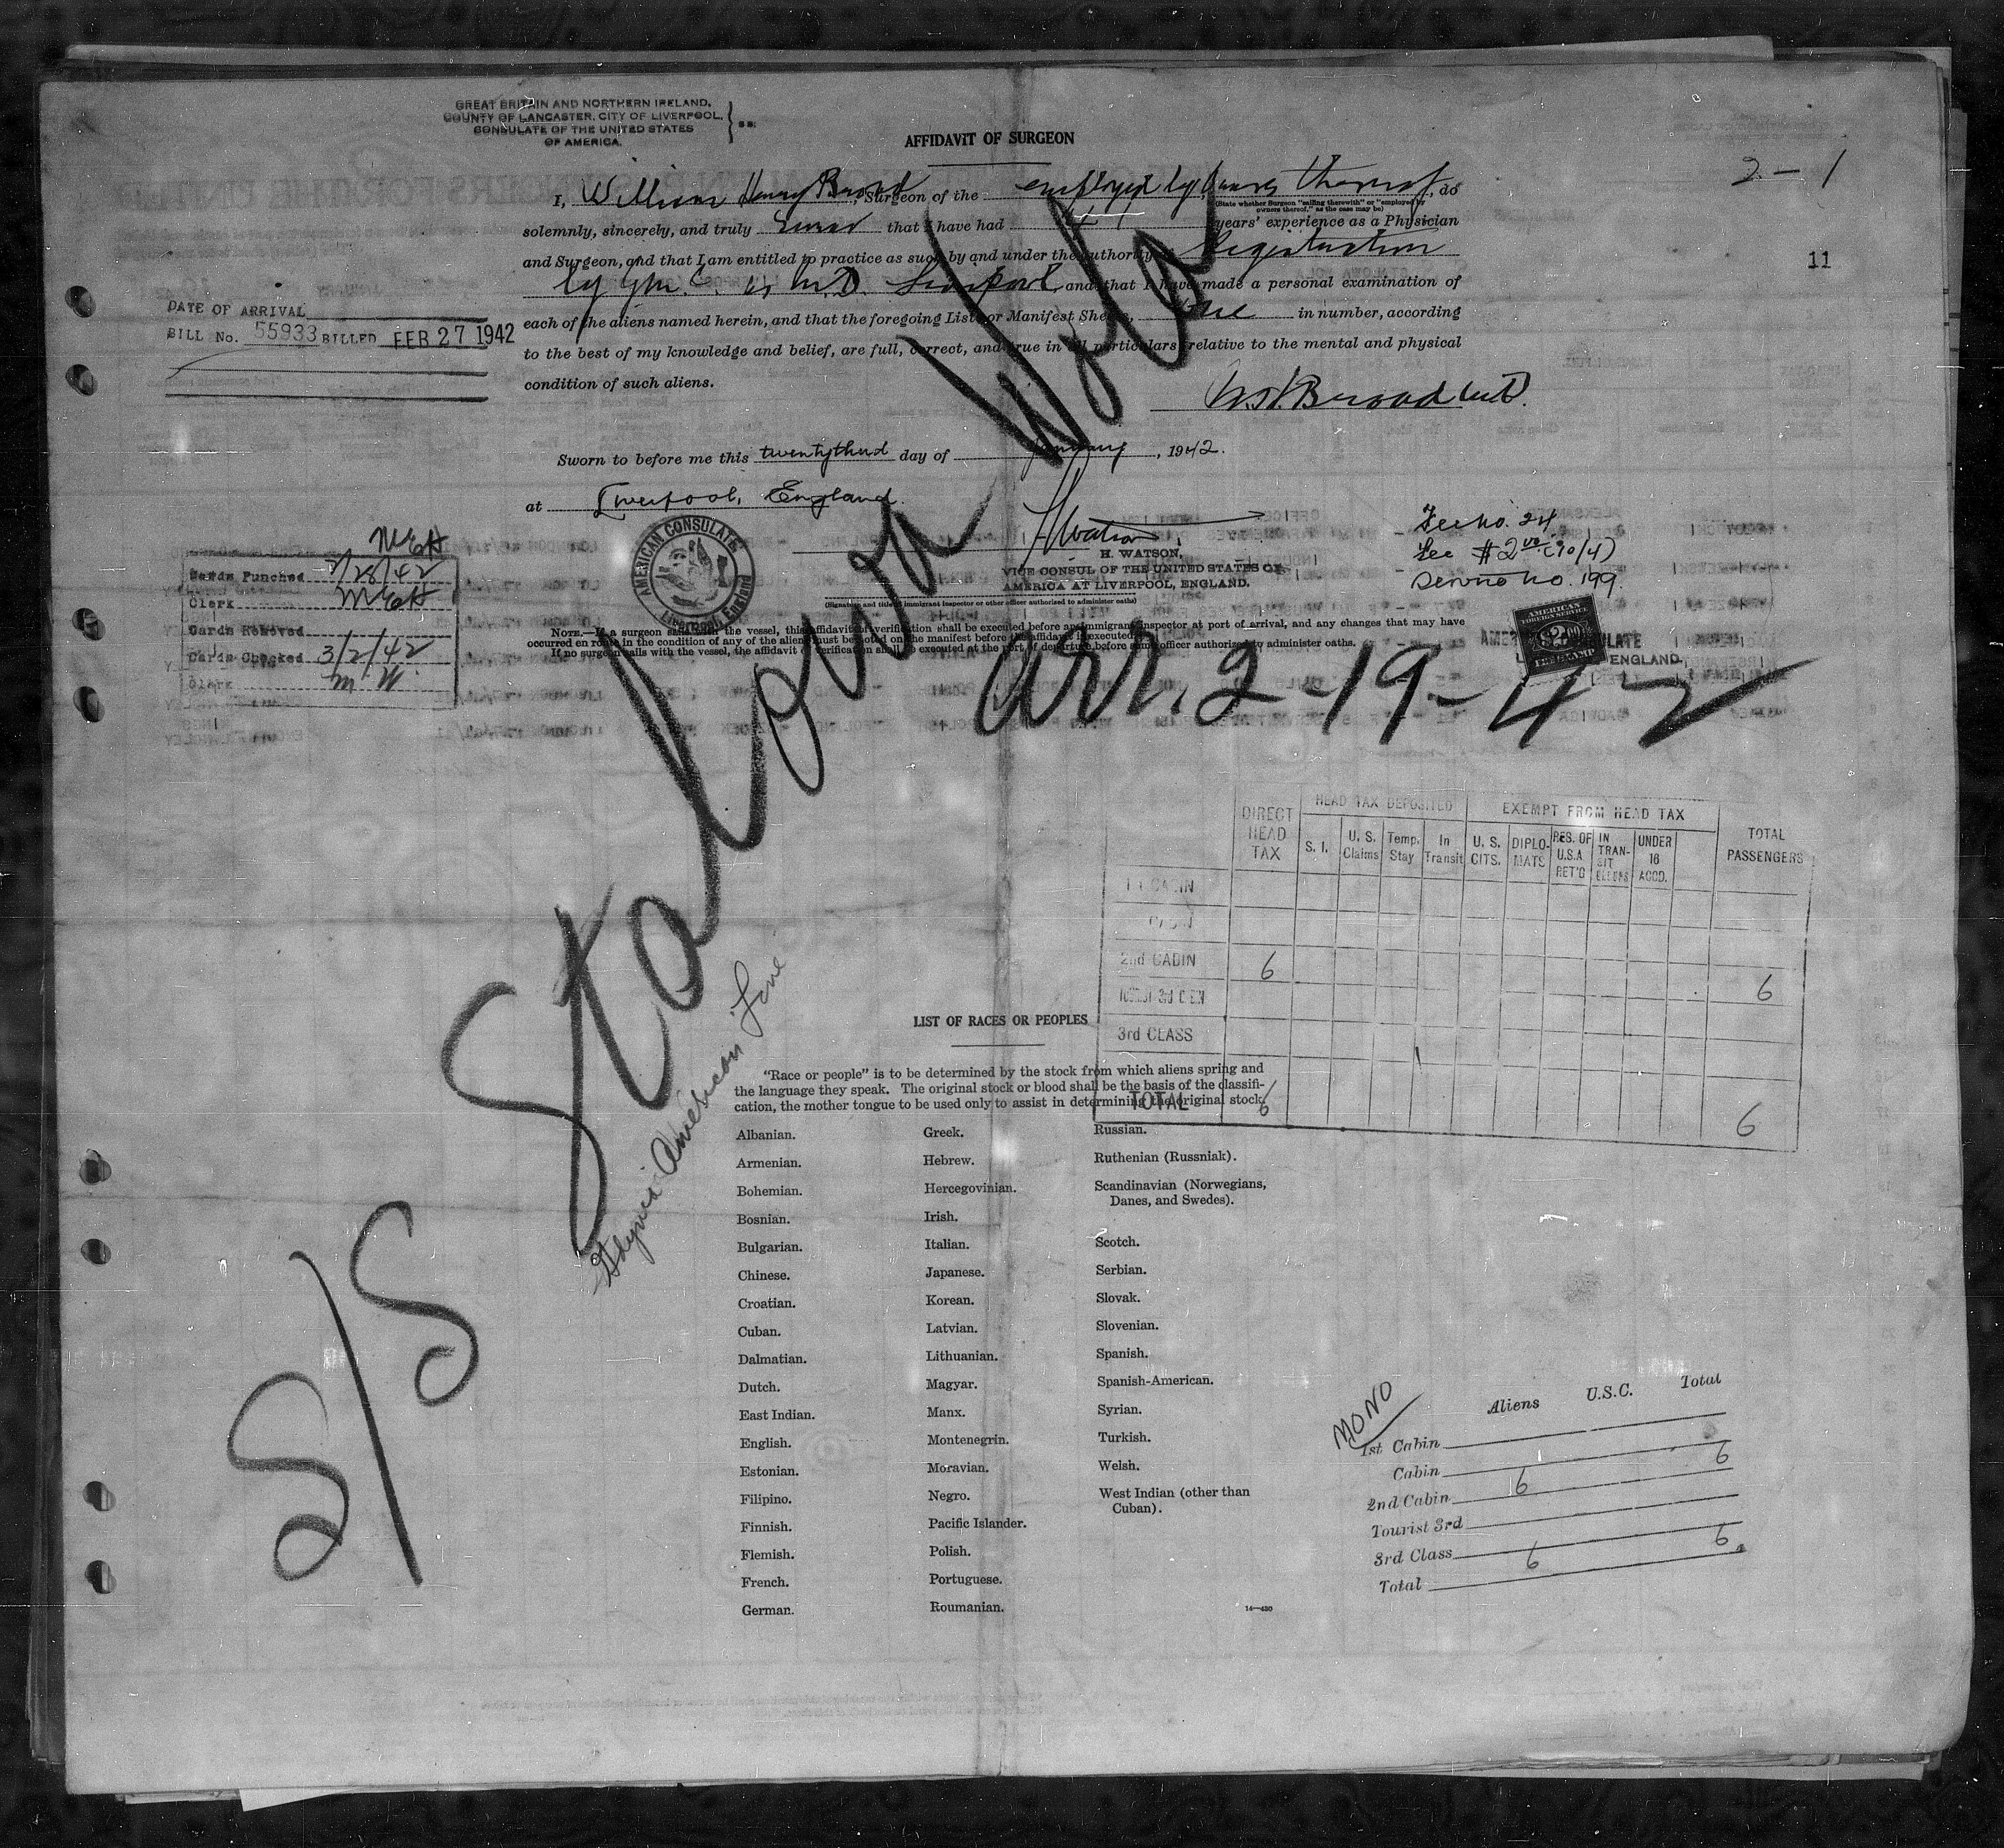 GREAT BRITAIN AND NORTHERN IRELAND,
COUNTY OF LANCASTER, CITY OF LIVERPOOL,
CONSULATE OF THE UNITED STATES
OF AMERICA.
} SS:
AFFIDAVIT OF SURGEON
2-1
11
I, William Henry Broad, Surgeon of the employed by owners thereof, do
(State whether Surgeon "sailing therewith" or "employed by
owners thereof," as the case may be)
solemnly, sincerely, and truly swear that I have had 41 years' experience as a Physician
and Surgeon, and that I am entitled to practice as such by and under the authority Registration
by G.M.C. as M.D. Liverpool and that I have made a personal examination of
each of the aliens named herein, and that the foregoing Lists or Manifest Sheets, one in number, according
to the best of my knowledge and belief, are full, correct, and true in all particulars relative to the mental and physical
condition of such aliens.
W.H. Broad M.D.
DATE OF ARRIVAL
BILL No. 55933 BILLED FEB 27 1942
Sworn to before me this twentythird day of January, 1942.
at Liverpool, England.
AMERICAN CONSULATE
Liverpool, England
H Watson
H. WATSON,
VICE CONSUL OF THE UNITED STATES OF
AMERICA AT LIVERPOOL, ENGLAND.
(Signature and title of immigrant inspector or other officer authorized to administer oaths)
Fee No. 24
Fee $2.00 (10/4)
Service No. 199.
AMERICAN
FOREIGN SERVICE
$2.00
FEE STAMP
AMERICAN CONSULATE
ENGLAND
NOTE.—If a surgeon sails with the vessel, this affidavit or verification shall be executed before an immigrant inspector at port of arrival, and any changes that may have
occurred en route in the condition of any of the aliens must be noted on the manifest before the affidavit is executed.
If no surgeon sails with the vessel, the affidavit or verification shall be executed at the port of departure before some officer authorized to administer oaths.
MEH
Cards Punched 2/28/42
Clerk MEH
Cards Removed
Cards Checked 3/2/42
Clerk M W.
S/S Stalowa Wola
arr. 2-19-42
Gdynia American Line
DIRECT HEAD TAX
HEAD TAX DEPOSITED
EXEMPT FROM HEAD TAX
TOTAL PASSENGERS
S. I.
U. S. Claims
Temp. Stay
In Transit
U. S. CITS.
DIPLO-MATS
RES. OF U.S.A RET'G
IN TRAN-SIT
UNDER 16 ACCD.
1st CABIN
CABIN
2nd CABIN 6 6
TOURIST 3rd
3rd CLASS
TOTAL 6 6
LIST OF RACES OR PEOPLES
"Race or people" is to be determined by the stock from which aliens spring and
the language they speak. The original stock or blood shall be the basis of the classifi-
cation, the mother tongue to be used only to assist in determining the original stock.
Albanian.
Armenian.
Bohemian.
Bosnian.
Bulgarian.
Chinese.
Croatian.
Cuban.
Dalmatian.
Dutch.
East Indian.
English.
Estonian.
Filipino.
Finnish.
Flemish.
French.
German.
Greek.
Hebrew.
Hercegovinian.
Irish.
Italian.
Japanese.
Korean.
Latvian.
Lithuanian.
Magyar.
Manx.
Montenegrin.
Moravian.
Negro.
Pacific Islander.
Polish.
Portuguese.
Roumanian.
Russian.
Ruthenian (Russniak).
Scandinavian (Norwegians,
Danes, and Swedes).
Scotch.
Serbian.
Slovak.
Slovenian.
Spanish.
Spanish-American.
Syrian.
Turkish.
Welsh.
West Indian (other than
Cuban).
14—430
MONO
Aliens U.S.C. Total
1st Cabin
Cabin
2nd Cabin 6 6
Tourist 3rd
3rd Class
Total 6 6